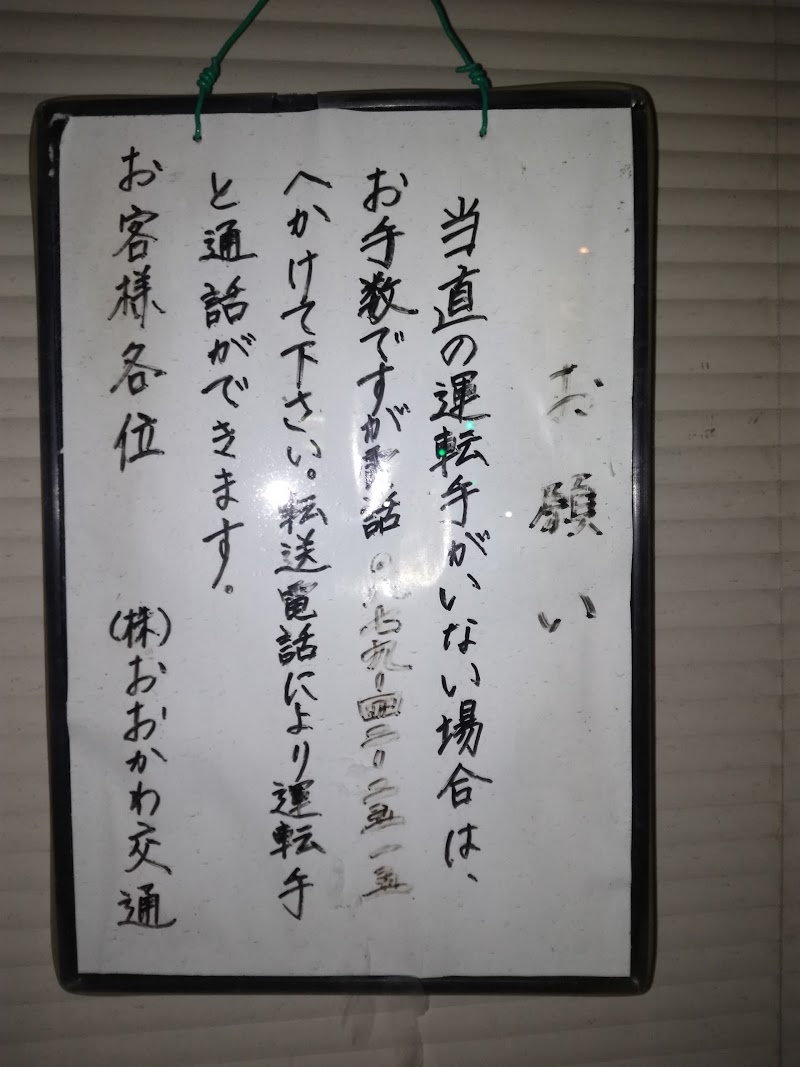 お願い
当直の運転手がいない場合は、
お手数ですが電話〇八七九ー四二ー二五一五
へかけて下さい。転送電話により運転手
と通話ができます。
お客様各位 (株)おおかわ交通